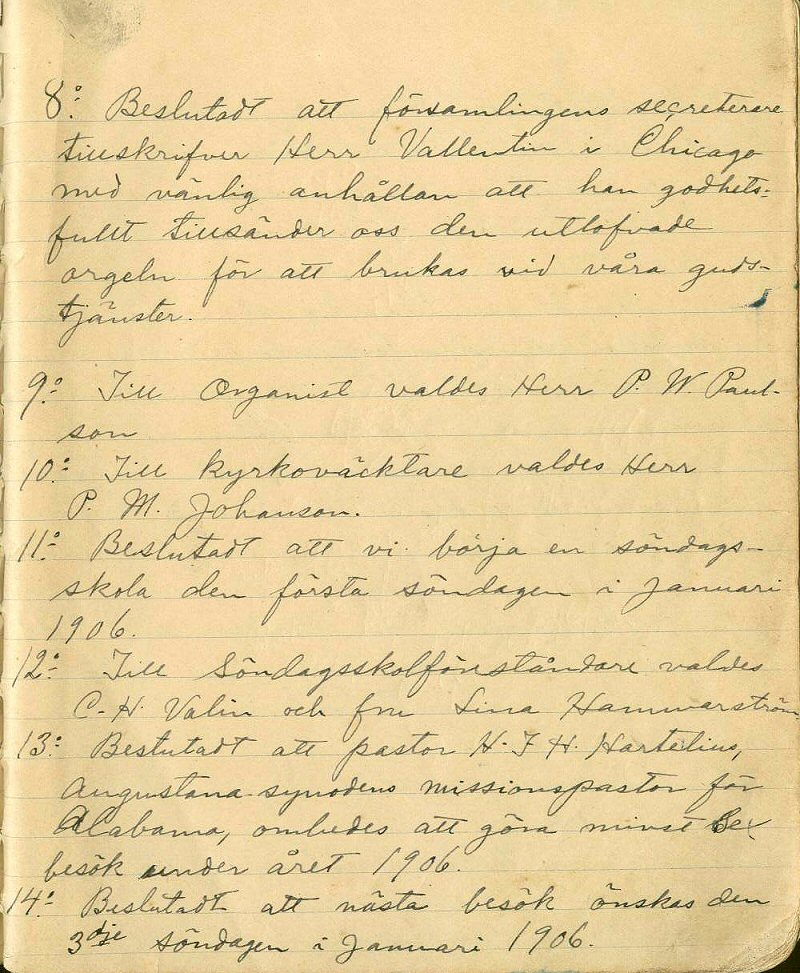 8:o Beslutadt att församlingens secreterare
tillskrifver Herr Vallentin i Chicago
med vänlig anhållan att han godhets-
fullt tillsänder oss den utlofvade
orgeln för att brukas vid våra guds-
tjänster.
9:o Till Organist valdes Herr P. W. Paul-
son
10:o Till kyrkoväcktare valdes Herr
P. M. Johanson.
11:o Beslutadt att vi börja en söndags-
skola den första söndagen i Januari
1906.
12:o Till Söndagsskolföreståndare valdes
C. H. Valin och fru Lina Hammarström
13:o Beslutadt att pastor H. F. H. Hartelius,
Augustana-synodens missionspastor för
Alabama, ombedes att göra minst
besök under året 1906.
14:o Beslutadt att nästa besök önskas den
3dje söndagen i Januari 1906.